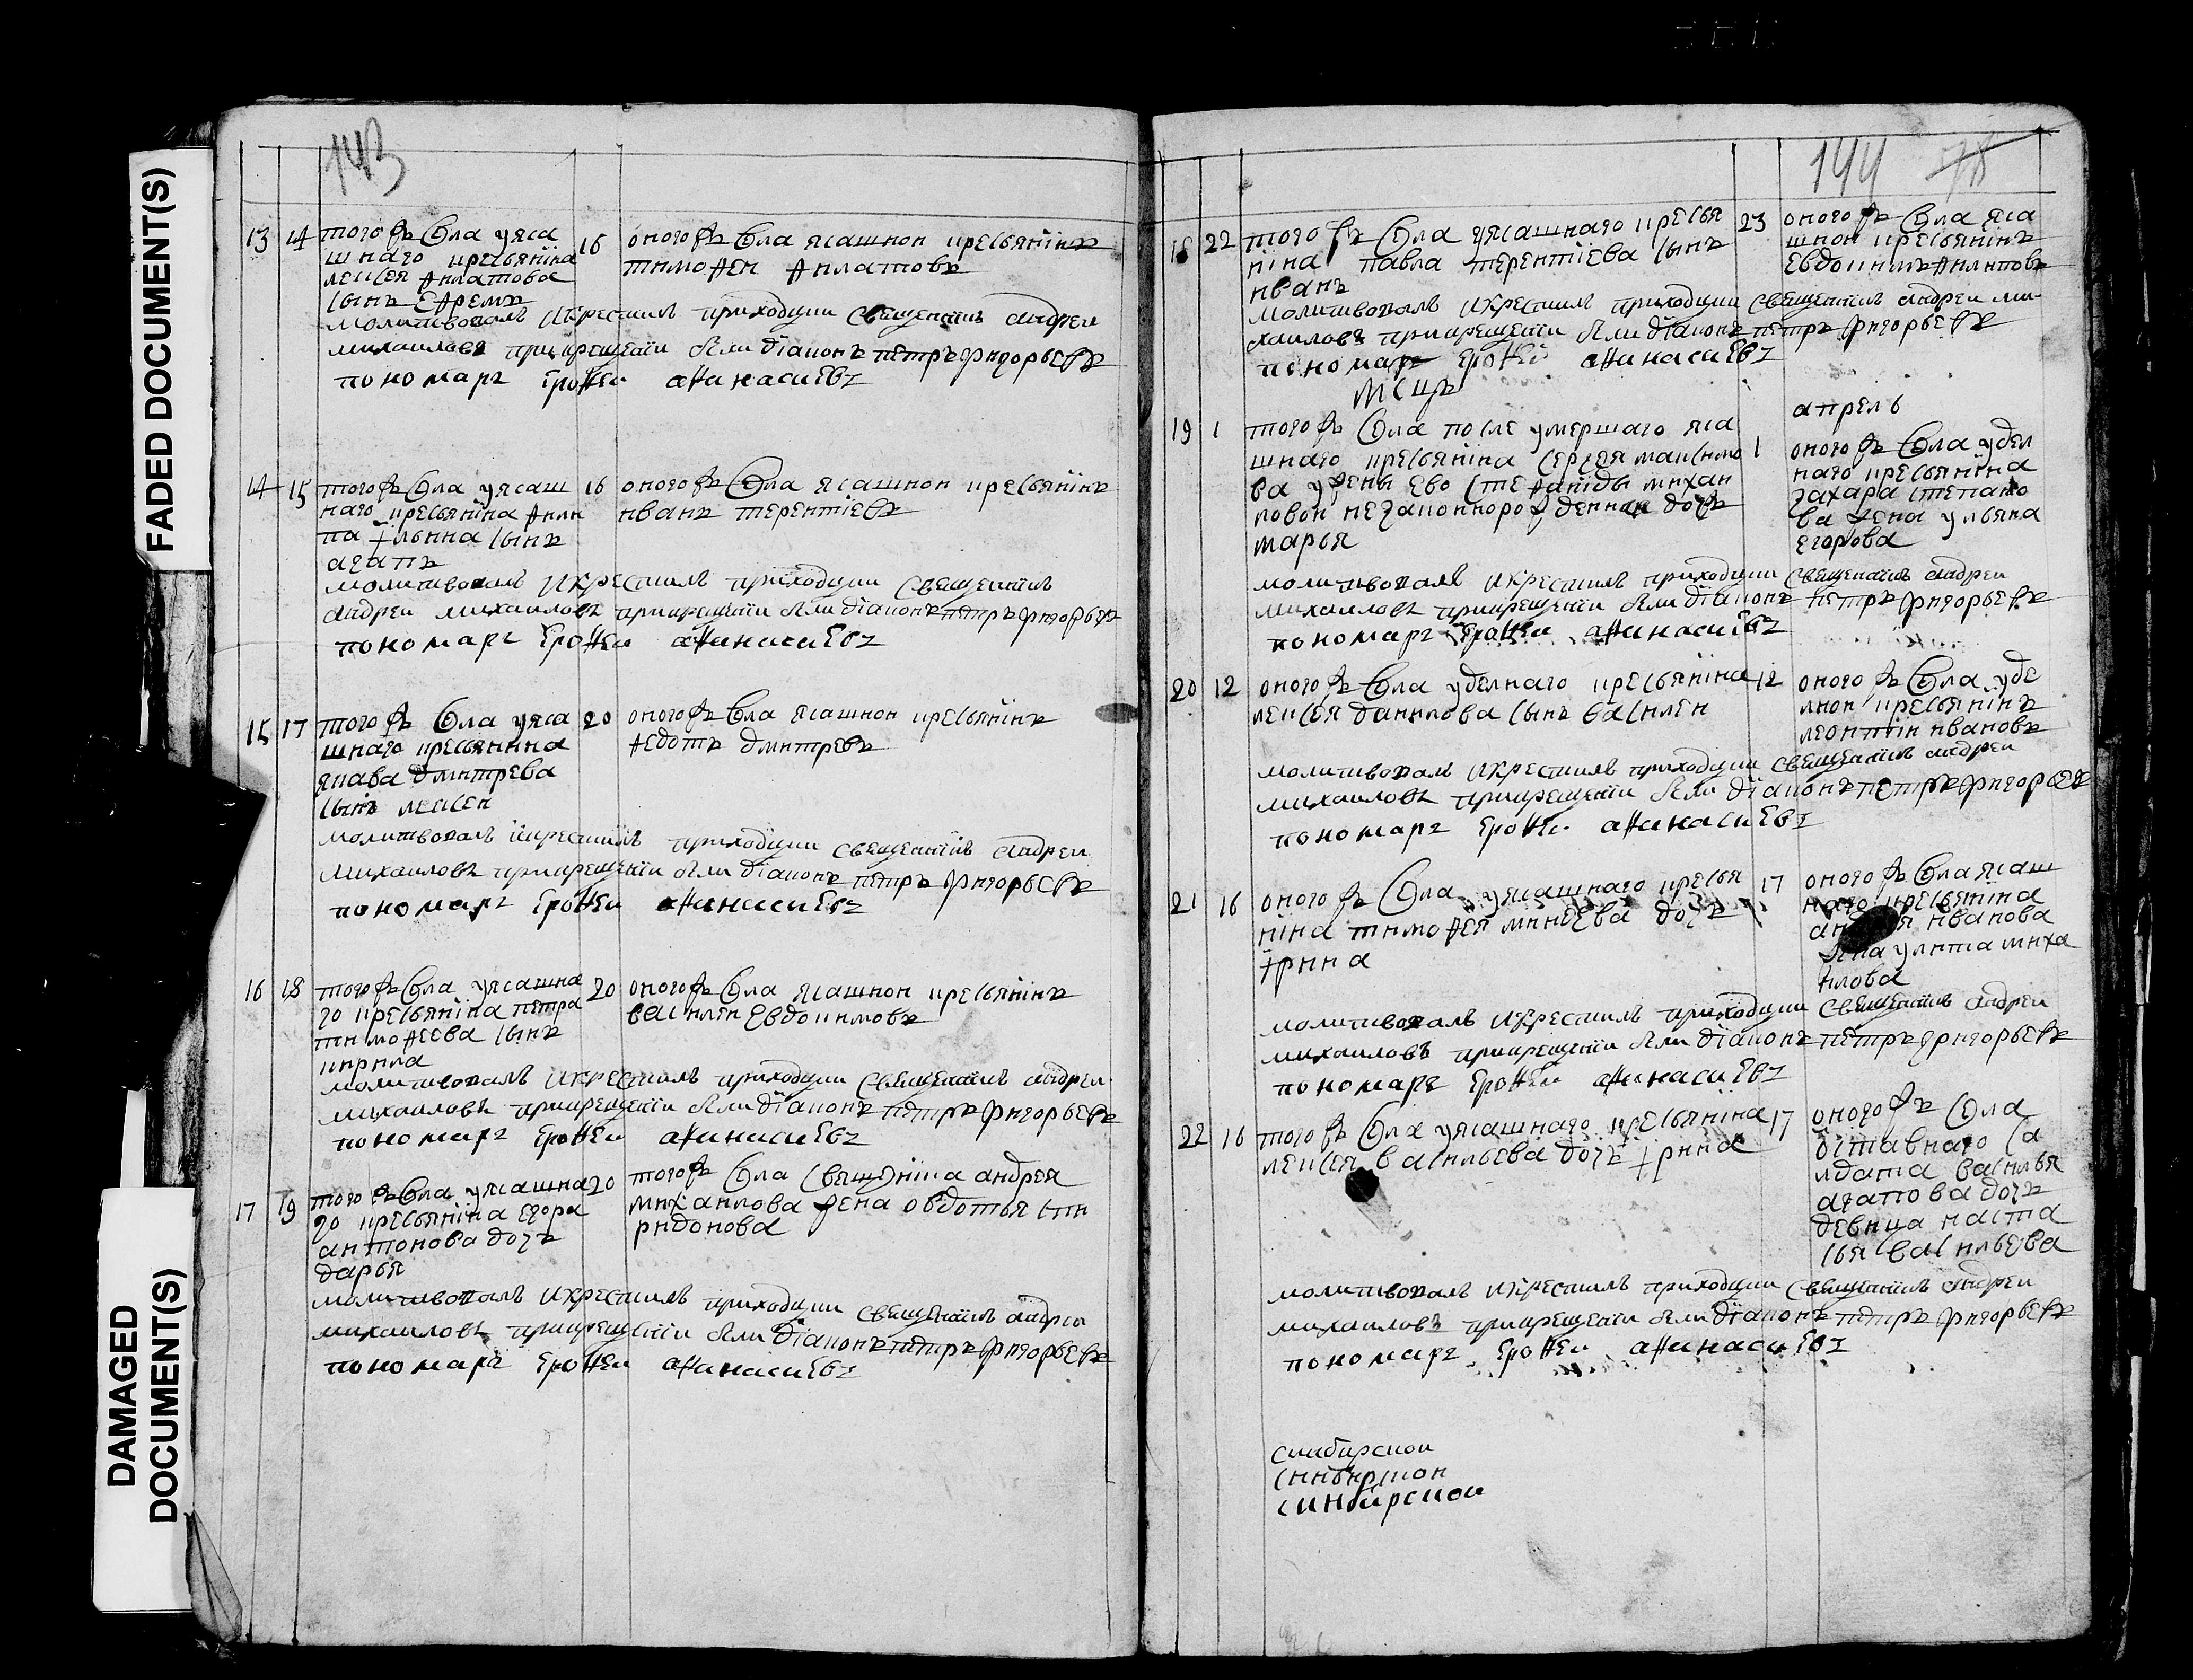 FADED DOCUMENT(S)
DAMAGED
DOCUMENT(S)
143
13 14 тогожъ Села уяса
шнаго кресьянина
лексея Филатова
сынъ Ефремъ
16 оногожъ Села ясашнои кресьянинъ
тимофеи Филатовъ
молитвовалъ икрестилъ приходции священникъ андреи
михаиловъ прикрещении были дiаконъ петръ григорьевъ
пономарь Ерофеи афанасиевъ
14 15 тогожъ Села уясаш
наго кресьянина Фили
па ильина сынъ
агапъ
16 оногожъ Села ясашнои кресьянинъ
иванъ терентiевъ
молитвовалъ икрестилъ приходции священникъ
андреи михаиловъ прикрещении были дiаконъ петръ григорьевъ
пономарь Ерофеи афанасиевъ
15 17 тогожъ Села уяса
шнаго кресьянина
якава дмитрева
сынъ лексеи
20 оногожъ Села ясашнои кресьянинъ
Федотъ дмитревъ
молитвовалъ икрестилъ приходции священникъ андреи
михаиловъ прикрещении были дiаконъ петръ григорьевъ
пономарь Ерофеи афанасиевъ
16 18 тогожъ Села уясашна
го кресьянина петра
тимофеева сынъ
кирила
20 оногожъ Села ясашнои кресьянинъ
василеи Евдокимовъ
молитвовалъ икрестилъ приходции священникъ андреи
михаиловъ прикрещении были дiаконъ петръ григорьевъ
пономарь Ерофеи афанасиевъ
17 19 тогожъ Села уясашна
го кресьянина егора
антонова дочь
дарья
20 тогожъ Села священика андрея
михаилова жена овдотья спи
ридонова
молитвовалъ икрестилъ приходции священникъ андреи
михаиловъ прикрещении были дiаконъ петръ григорьевъ
пономарь Ерофеи афанасиевъ
144 78
18 22 тогожъ Села уясашнаго кресья
нина павла терентiева сынъ
иванъ
23 оногожъ Села яса
шнои кресьянинъ
Евдокимъ Филиповъ
молитвовалъ икрестилъ приходции священникъ андреи ми
хаиловъ прикрещении были дiаконъ петръ григорьевъ
пономарь Ерофеи афанасиевъ
мсцъ апрель
19 1 тогожъ Села после умершаго яса
шнаго кресьянина сергея максимо
ва ужены ево стефаниды михаи
ловои незаконнорожденная дочь
марья
1 оногожъ Села удел
наго кресьянина
захара степано
ва жена ульяна
егорова
молитвовалъ икрестилъ приходции священникъ андреи
михаиловъ прикрещении были дiаконъ петръ григорьевъ
пономарь Ерофеи афанасиевъ
20 12 оногожъ Села уделнаго кресьянина
лексея данилова сынъ василеи
12 оногожъ Села уде
лнои кресьянинъ
леонтiи ивановъ
молитвовалъ икрестилъ приходции священникъ андреи
михаиловъ прикрещении были дiаконъ петръ григорьевъ
пономарь Ерофеи афанасиевъ
21 16 оногожъ Села уясашнаго кресья
нина тимофея минеева дочь
ирина
17 оногожъ Села ясаш
наго кресьянина
иванова
жена улита миха
илова
молитвовалъ икрестилъ приходции священникъ андреи
михаиловъ прикрещении были дiаконъ петръ григорьевъ
пономарь Ерофеи афанасиевъ
22 16 тогожъ Села уясашнаго кресьянина
лексея васильева дочь ирина
17 оногожъ Села
отставнаго са
лдата василья
агапова дочь
девица наста
сья васильева
молитвовалъ икрестилъ приходции священникъ андреи
михаиловъ прикрещении были дiаконъ петръ григорьевъ
пономарь Ерофеи афанасиевъ
синбирскои
синбирскои
синбирскои